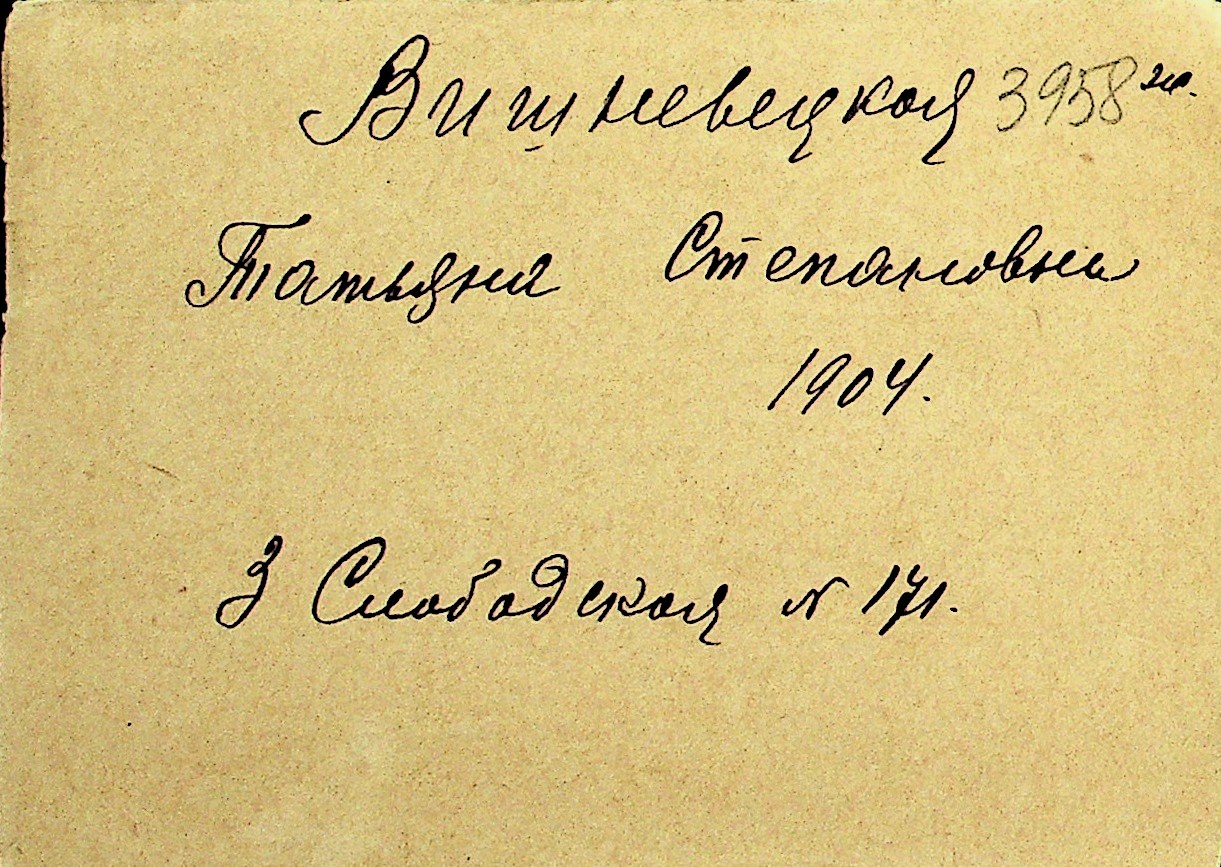 Вишневецкая 3958
Татьяна Степановна
1904.
3 Слободская № 171.